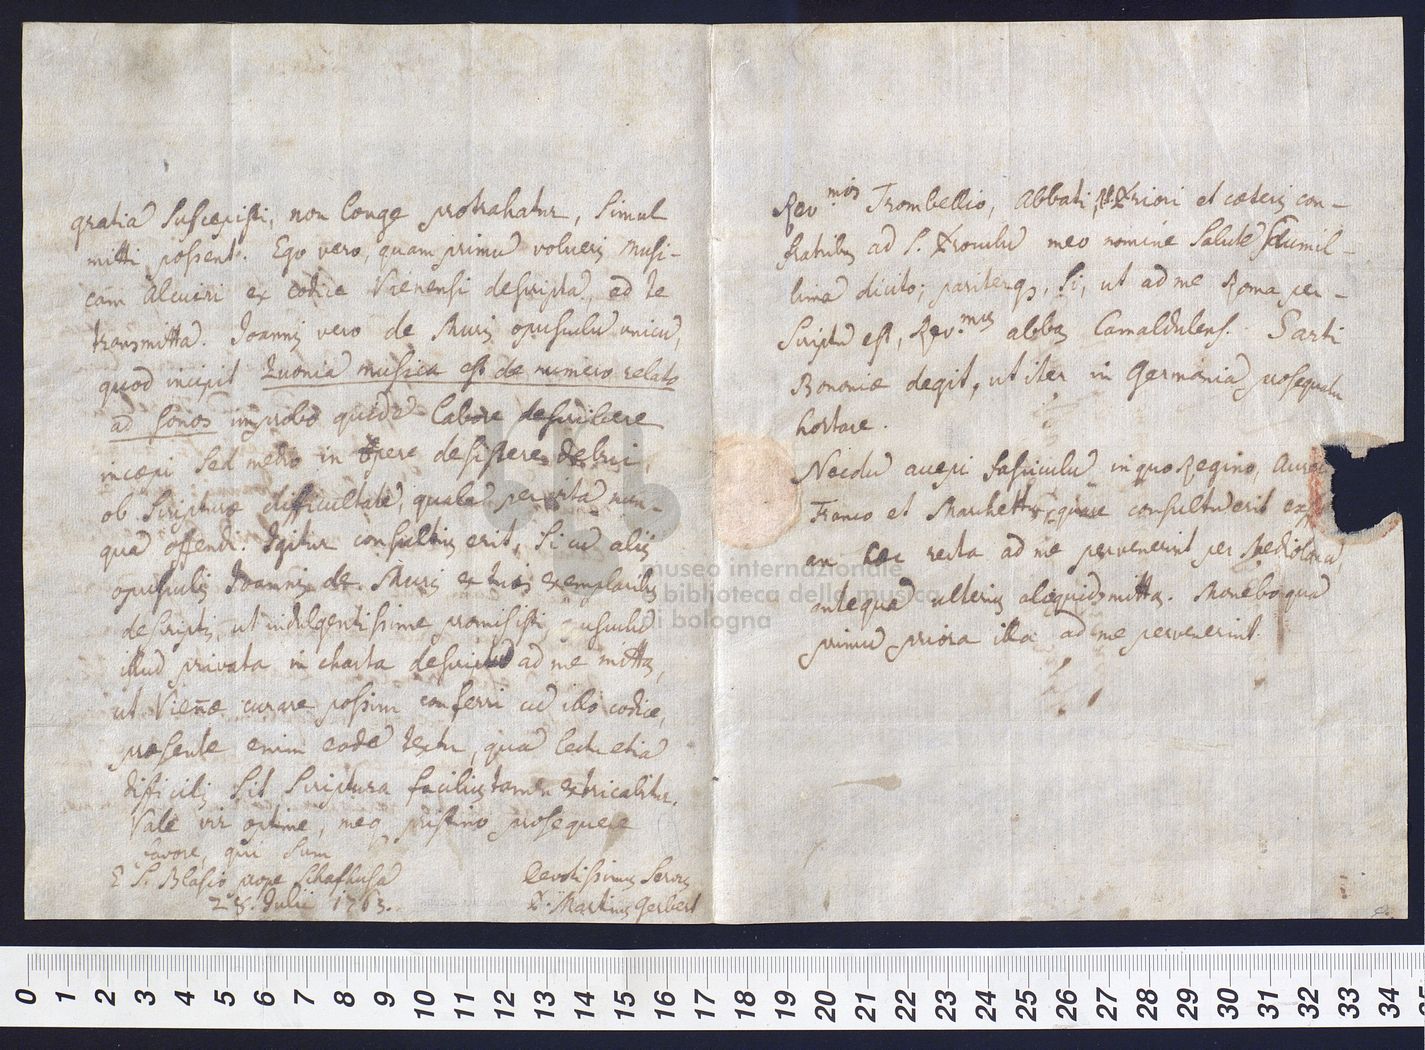 gratiã suscepisti, non longe protrahatur, simul
mitti possent. Ego vero, quam primũ volueris Musi-
cam Alcuiri ex codice Vieñensi descriptã, ad te
transmittã. Joannis vero de Muris opusculũ unicũ,
quod incipit Quoniã musica est de numero relato
ad sonos improbo quodã labore describere
incœpi sed medio in opere desistere debui,
ob scripturæ difficultatẽ, qualẽ per vitã nun-
quã offendi. Igitur consultius erit, si cũ aliis
opusculis Joannis de Muris ex tuis exemplaribus
descriptis, ut indulgentissime promisisti, opusculũ
illud privata in charta descriptũ ad me mittas,
ut Vieñæ curare possim conferri cũ illo codice,
præsente enim eodẽ textu, quã lectu etiã
difficilis sit scriptura facilius tamen extricabitur.
Vale vir optime, meq pristino prosequere
favore, qui sum
E S. Blasio prope Schafhusã
28. Julii 1763.
Devotissimus Servus
P. Martinus Gerbert
Rev.mis Trombellio, Abbati, Priori et cæteris con-
fratribus ad S. Proculũ meo nomine salutẽ humil-
limã dicito; pariterq, si, ut ad me Roma per-
scriptũ est, Rev.mus abbas Camaldulens. Sarti
Bononiæ degit, ut iter in Germaniã prosequatur
hortare.
Necdũ accepi fasciculũ in quo Regino,
Franco et Marchettus, quare consultũ erit
an recta ad me pervenerint per Mediolanũ,
antequã ulterius aliquid mittas. Monebo quã
primũ priora illa ad me pervenerint.
museo internazionale
e biblioteca della musica
di bologna
0 1 2 3 4 5 6 7 8 9 10 11 12 13 14 15 16 17 18 19 20 21 22 23 24 25 26 27 28 29 30 31 32 33 34 35